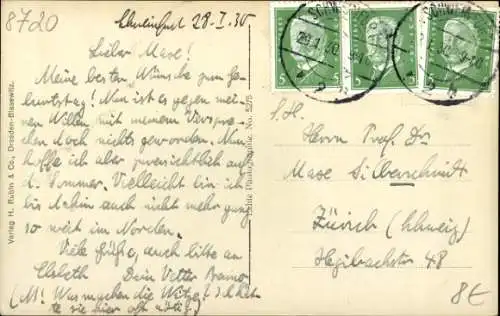 8720
Schweinfurt 28.I.30
Lieber Maxe!
Meine besten Wünsche zum Ge-
burtstag! Nun ist es gegen mei-
nen Willen mit meinem Verspre-
chen doch nichts geworden. Nun
hoffe ich aber zuversichtlich auf
d. Sommer. Vielleicht bin ich
bis dahin auch nicht mehr ganz
so weit im Norden.
Viele Grüße, auch bitte an
Elsbeth Dein Vetter
(M! Was machen die Witze? Ich hät-
te sie hier oft nötig!)
Verlag H. Rubin & Co., Dresden-Blasewitz.
Echte Photographie. No. 5276
SCHWEINFURT
5 5 5
S.H.
Herrn Prof. Dr
Maxe Silberschmidt
Zürich (Schweiz)
Hegibachstr 48
8€